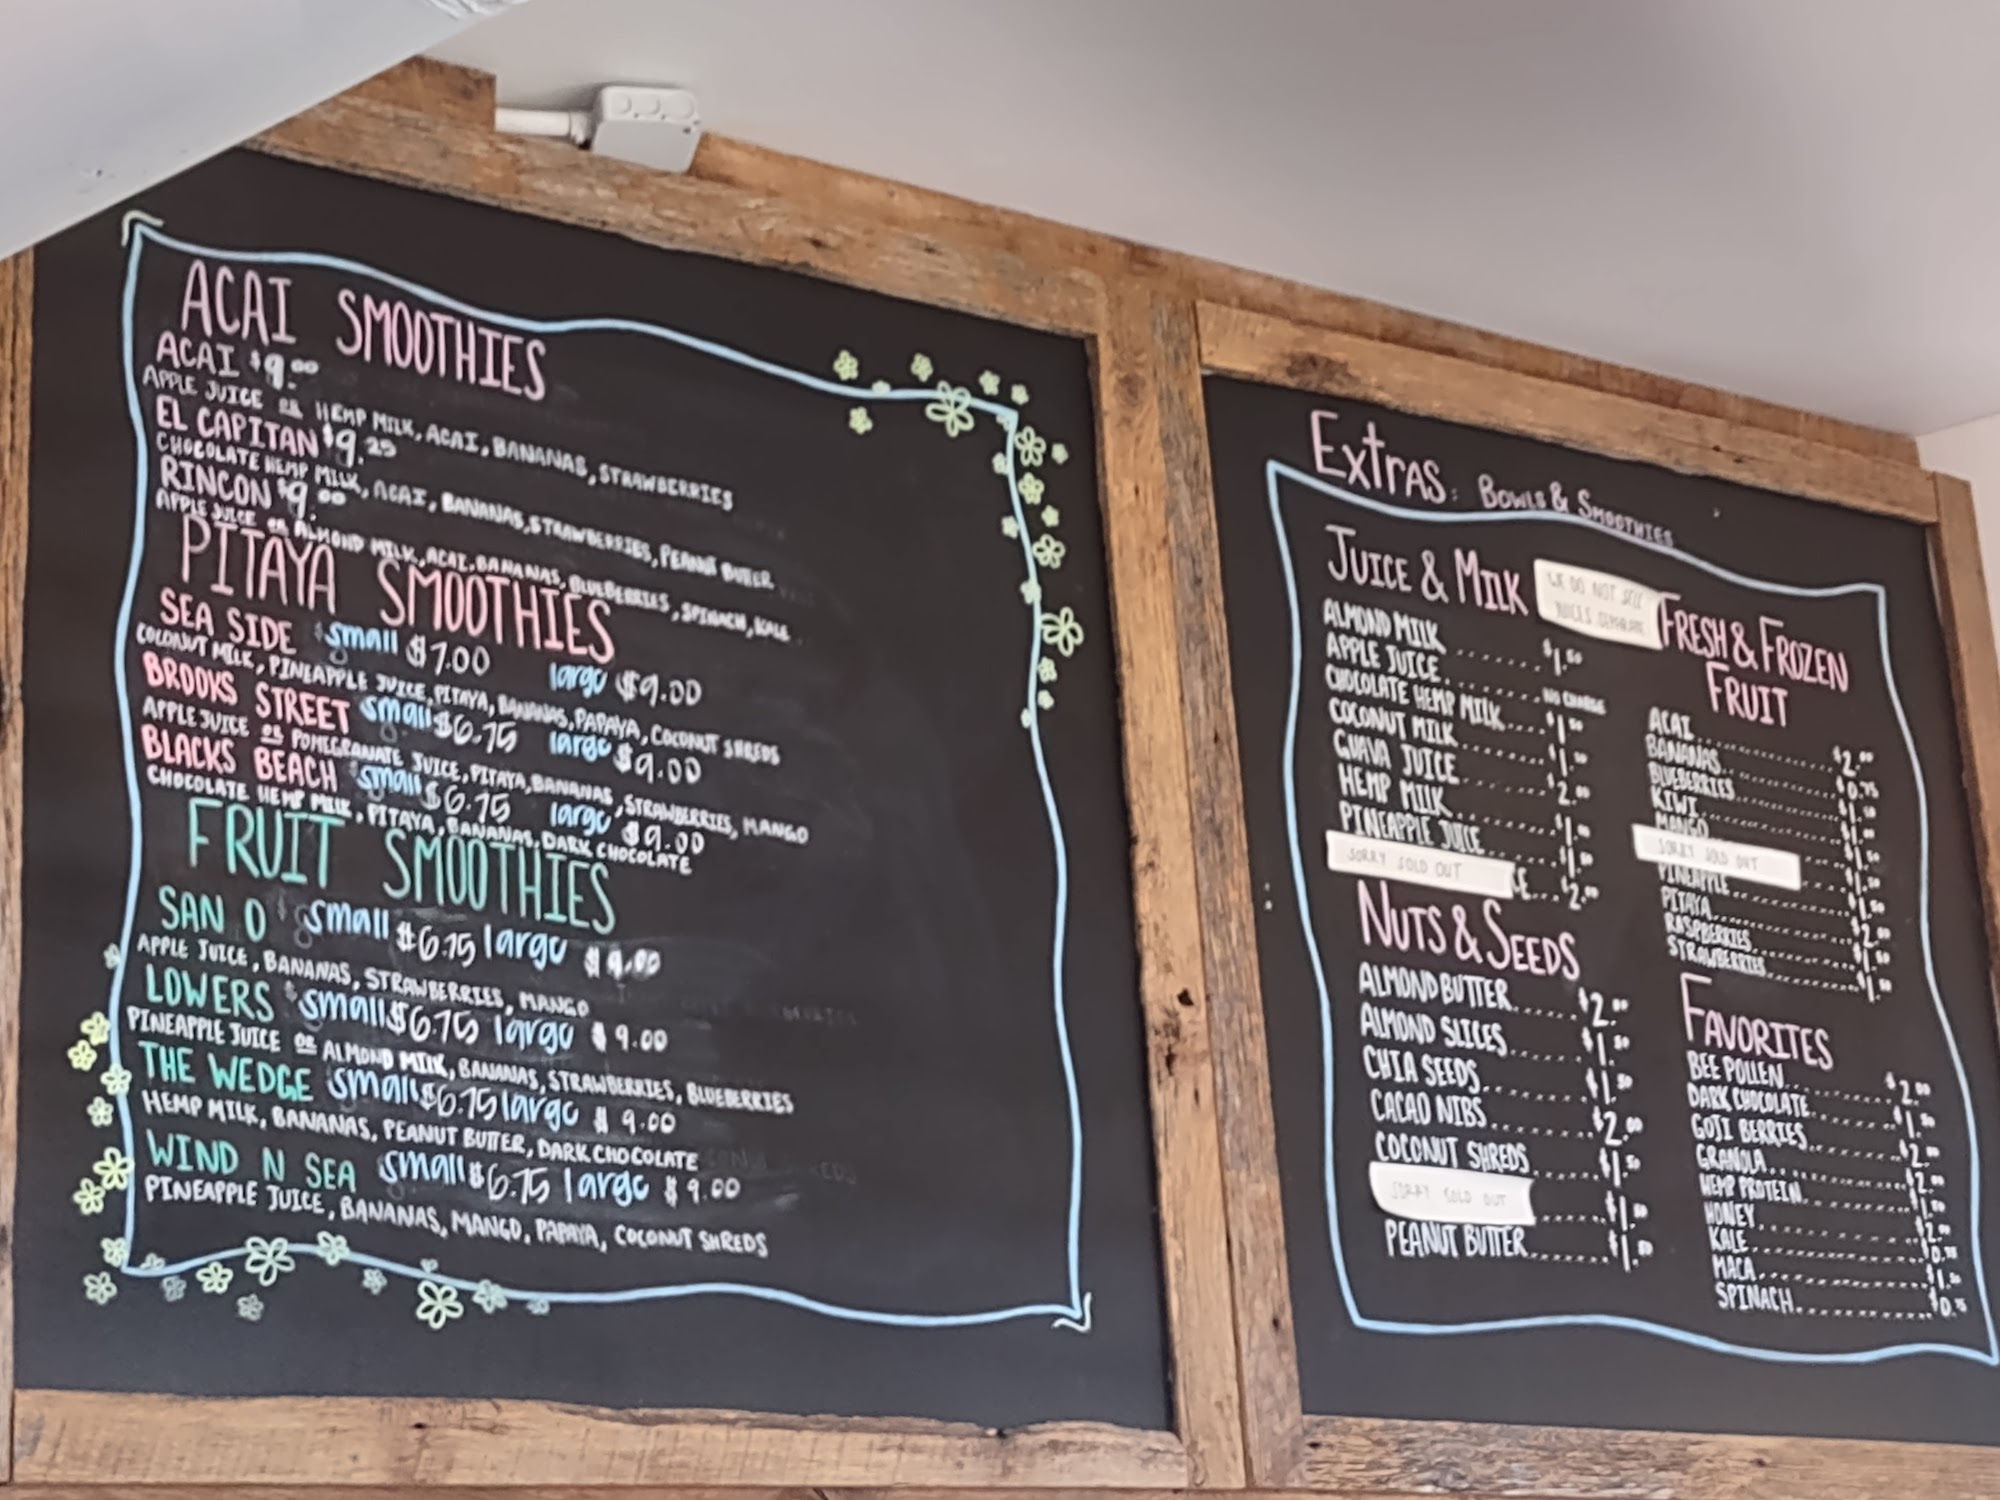 ACAI SMOOTHIES
ACAI $9.00
APPLE JUICE OR HEMP MILK, ACAI, BANANAS, STRAWBERRIES
EL CAPITAN $9.25
CHOCOLATE HEMP MILK, ACAI, BANANAS, STRAWBERRIES, PEANUT BUTTER
RINCON $9.00
APPLE JUICE OR ALMOND MILK, ACAI, BANANAS, BLUEBERRIES, SPINACH, KALE
PITAYA SMOOTHIES
SEA SIDE small $7.00 large $9.00
COCONUT MILK, PINEAPPLE JUICE, PITAYA, BANANAS, PAPAYA, COCONUT SHREDS
BROOKS STREET small $6.75 large $9.00
APPLE JUICE OR POMEGRANATE JUICE, PITAYA, BANANAS, STRAWBERRIES, MANGO
BLACKS BEACH small $6.75 large $9.00
CHOCOLATE HEMP MILK, PITAYA, BANANAS, DARK CHOCOLATE
FRUIT SMOOTHIES
SAN O small $6.75 large $9.00
APPLE JUICE, BANANAS, STRAWBERRIES, MANGO
LOWERS small $6.75 large $9.00
PINEAPPLE JUICE OR ALMOND MILK, BANANAS, STRAWBERRIES, BLUEBERRIES
THE WEDGE small $6.75 large $9.00
HEMP MILK, BANANAS, PEANUT BUTTER, DARK CHOCOLATE
WIND N SEA small $6.75 large $9.00
PINEAPPLE JUICE, BANANAS, MANGO, PAPAYA, COCONUT SHREDS
EXTRAS: BOWLS & SMOOTHIES
JUICE & MILK
WE DO NOT SELL
JUICES SEPARATE
ALMOND MILK ....... $1.50
APPLE JUICE ....... NO CHARGE
CHOCOLATE HEMP MILK .... $1.50
COCONUT MILK ....... $1.
GUAVA JUICE ....... $2.00
HEMP MILK ....... $1.
PINEAPPLE JUICE ....... $1.
SORRY SOLD OUT CE... $2.00
NUTS & SEEDS
ALMOND BUTTER ....... $2.00
ALMOND SLICES ....... $1.
CHIA SEEDS ....... $1.50
CACAO NIBS ....... $2.00
COCONUT SHREDS ....... $1.50
SORRY SOLD OUT ....... $1.
PEANUT BUTTER ....... $1.50
FRESH & FROZEN
FRUIT
ACAI ....... $2.00
BANANAS ....... $0.75
BLUEBERRIES ....... $1.
KIWI ....... $1.
MANGO ....... $1.50
SORRY SOLD OUT
PINEAPPLE ....... $1.50
PITAYA ....... $2.00
RASPBERRIES ....... $1.50
STRAWBERRIES ....... $1.
FAVORITES
BEE POLLEN ....... $2.00
DARK CHOCOLATE ....... $1.50
GOJI BERRIES ....... $2.00
GRANOLA ....... $1.
HEMP PROTEIN ....... $2.00
HONEY
KALE ....... $0.75
MACA ....... $1.50
SPINACH ....... $0.75